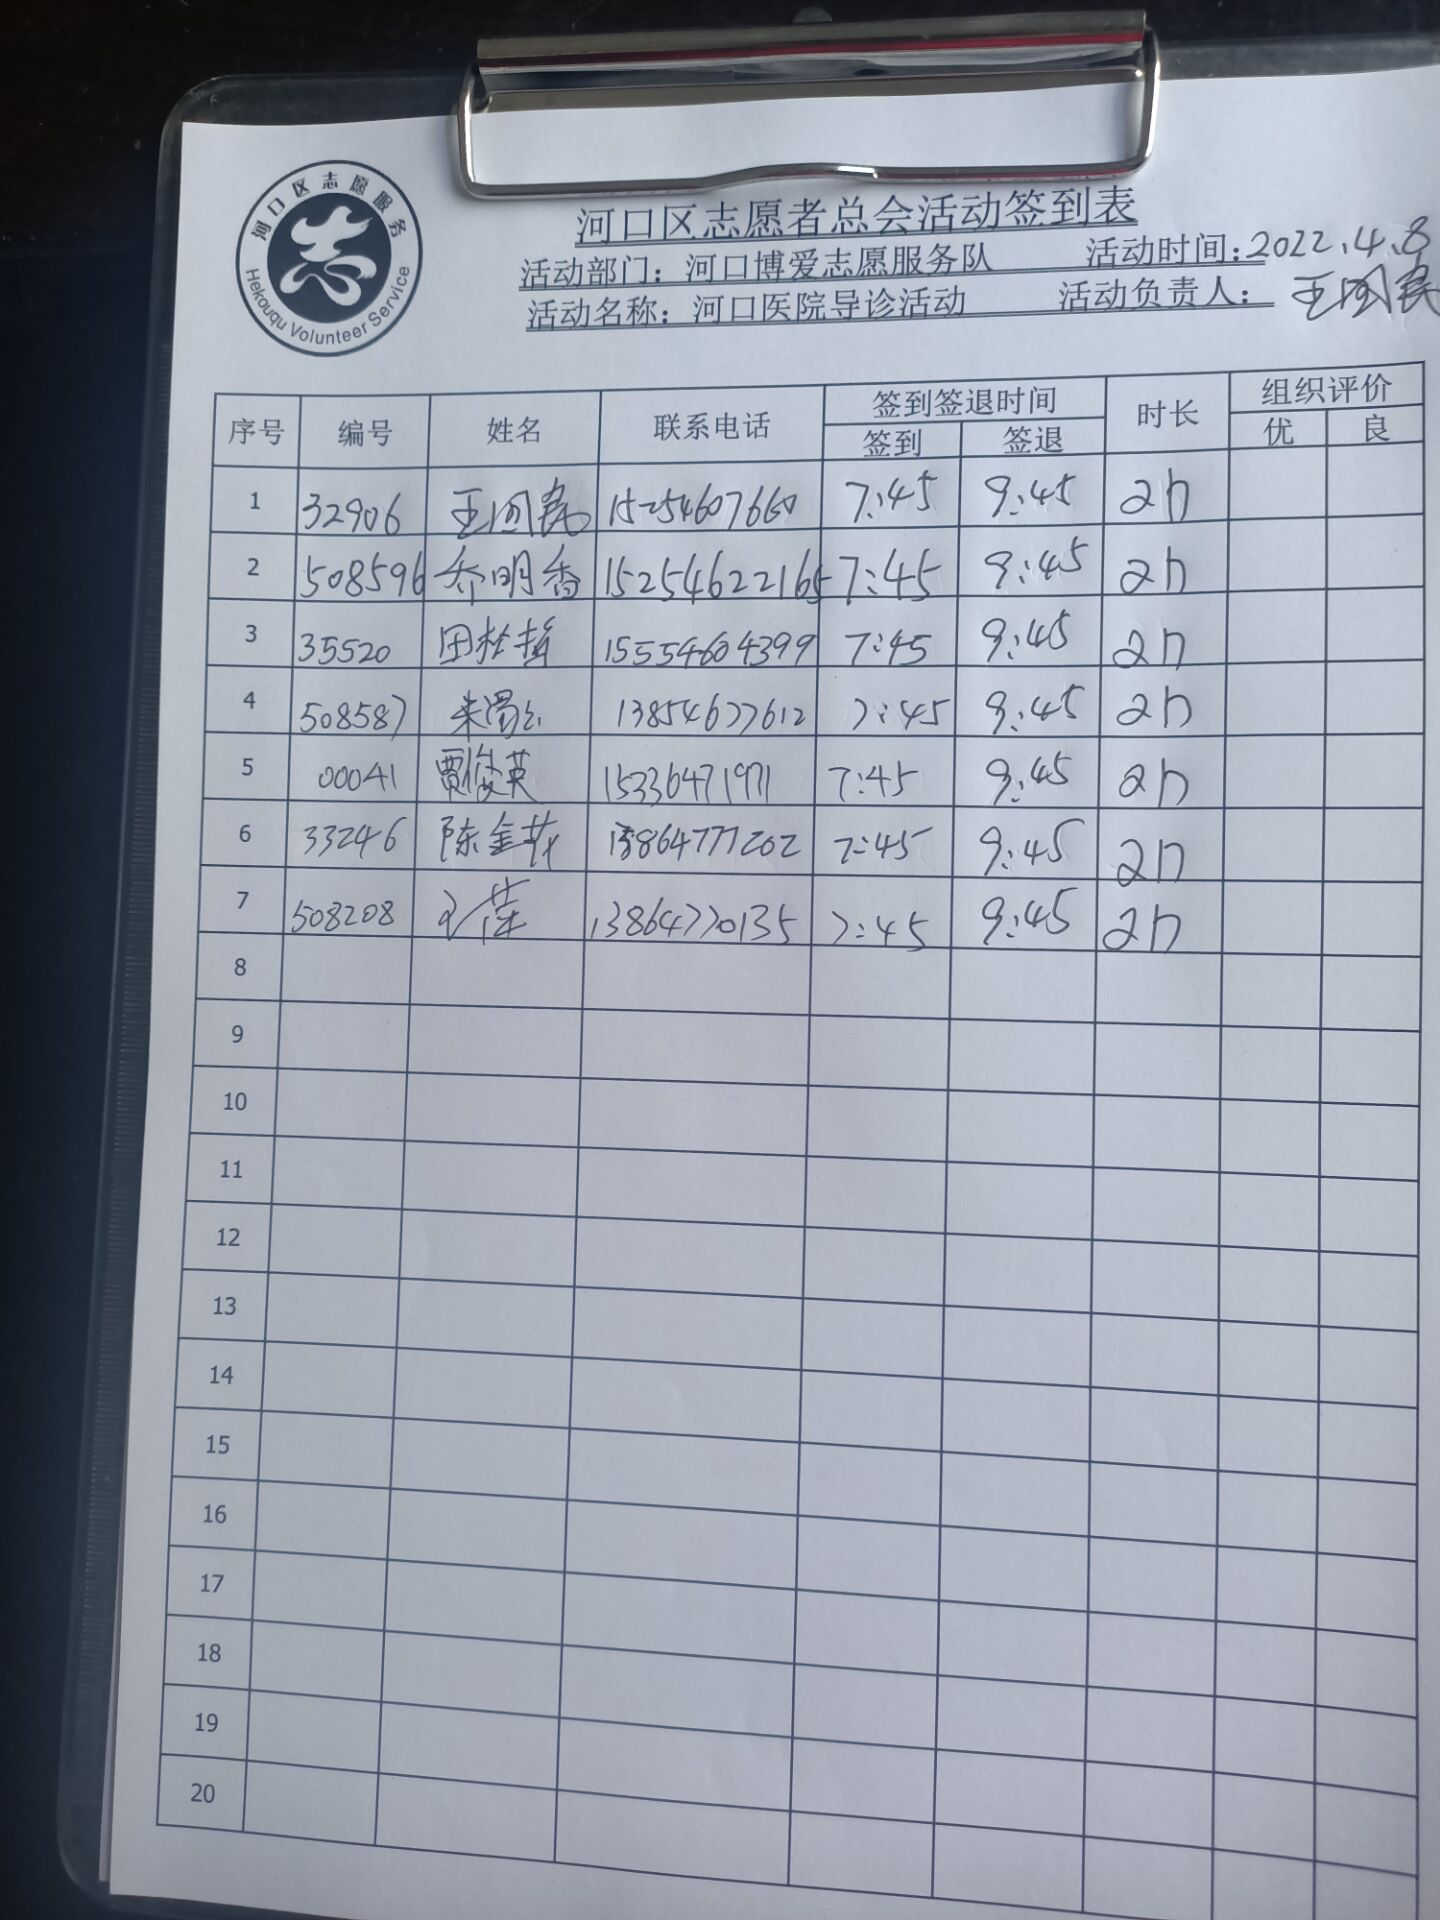 河口区志愿服务
Hekouqu Volunteer Service
河口区志愿者总会活动签到表
活动部门：河口博爱志愿服务队 活动时间：2022.4.8
活动名称：河口医院导诊活动 活动负责人：王
序号 编号 姓名 联系电话 签到签退时间 时长 组织评价
签到 签退 优 良
1 32906 王 15254607660 7:45 9:45 2h
2 508596 乔明香 15254622165 7:45 9:45 2h
3 35520 田 15554604399 7:45 9:45 2h
4 508587 13854677612 7:45 9:45 2h
5 00041 贾俊英 15336471971 7:45 9:45 2h
6 33246 陈金 13864777202 7:45 9:45 2h
7 508208 13864770135 7:45 9:45 2h
8
9
10
11
12
13
14
15
16
17
18
19
20